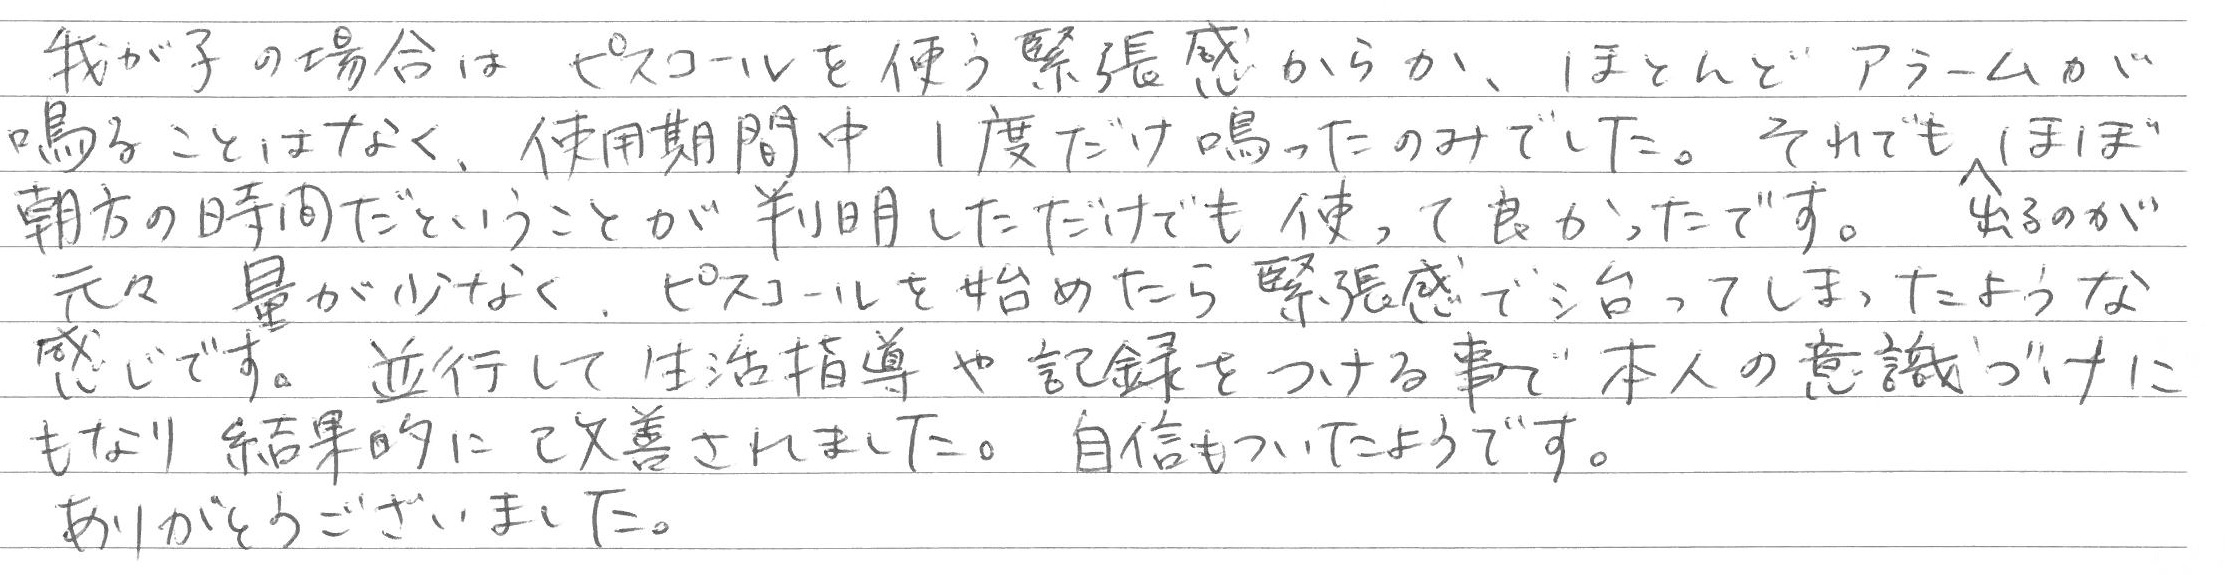 我が子の場合は ピスコールを使う緊張感からか、ほとんどアラームが
鳴ることはなく、使用期間中 1度だけ鳴ったのみでした。それでも出るのがほぼ
朝方の時間だということが判明しただけでも使って良かったです。
元々 量が少なく、ピスコールを始めたら緊張感で治ってしまったような
感じです。並行して生活指導や記録をつける事で本人の意識づけに
もなり結果的にで改善されました。自信もついたようです。
ありがとうございました。